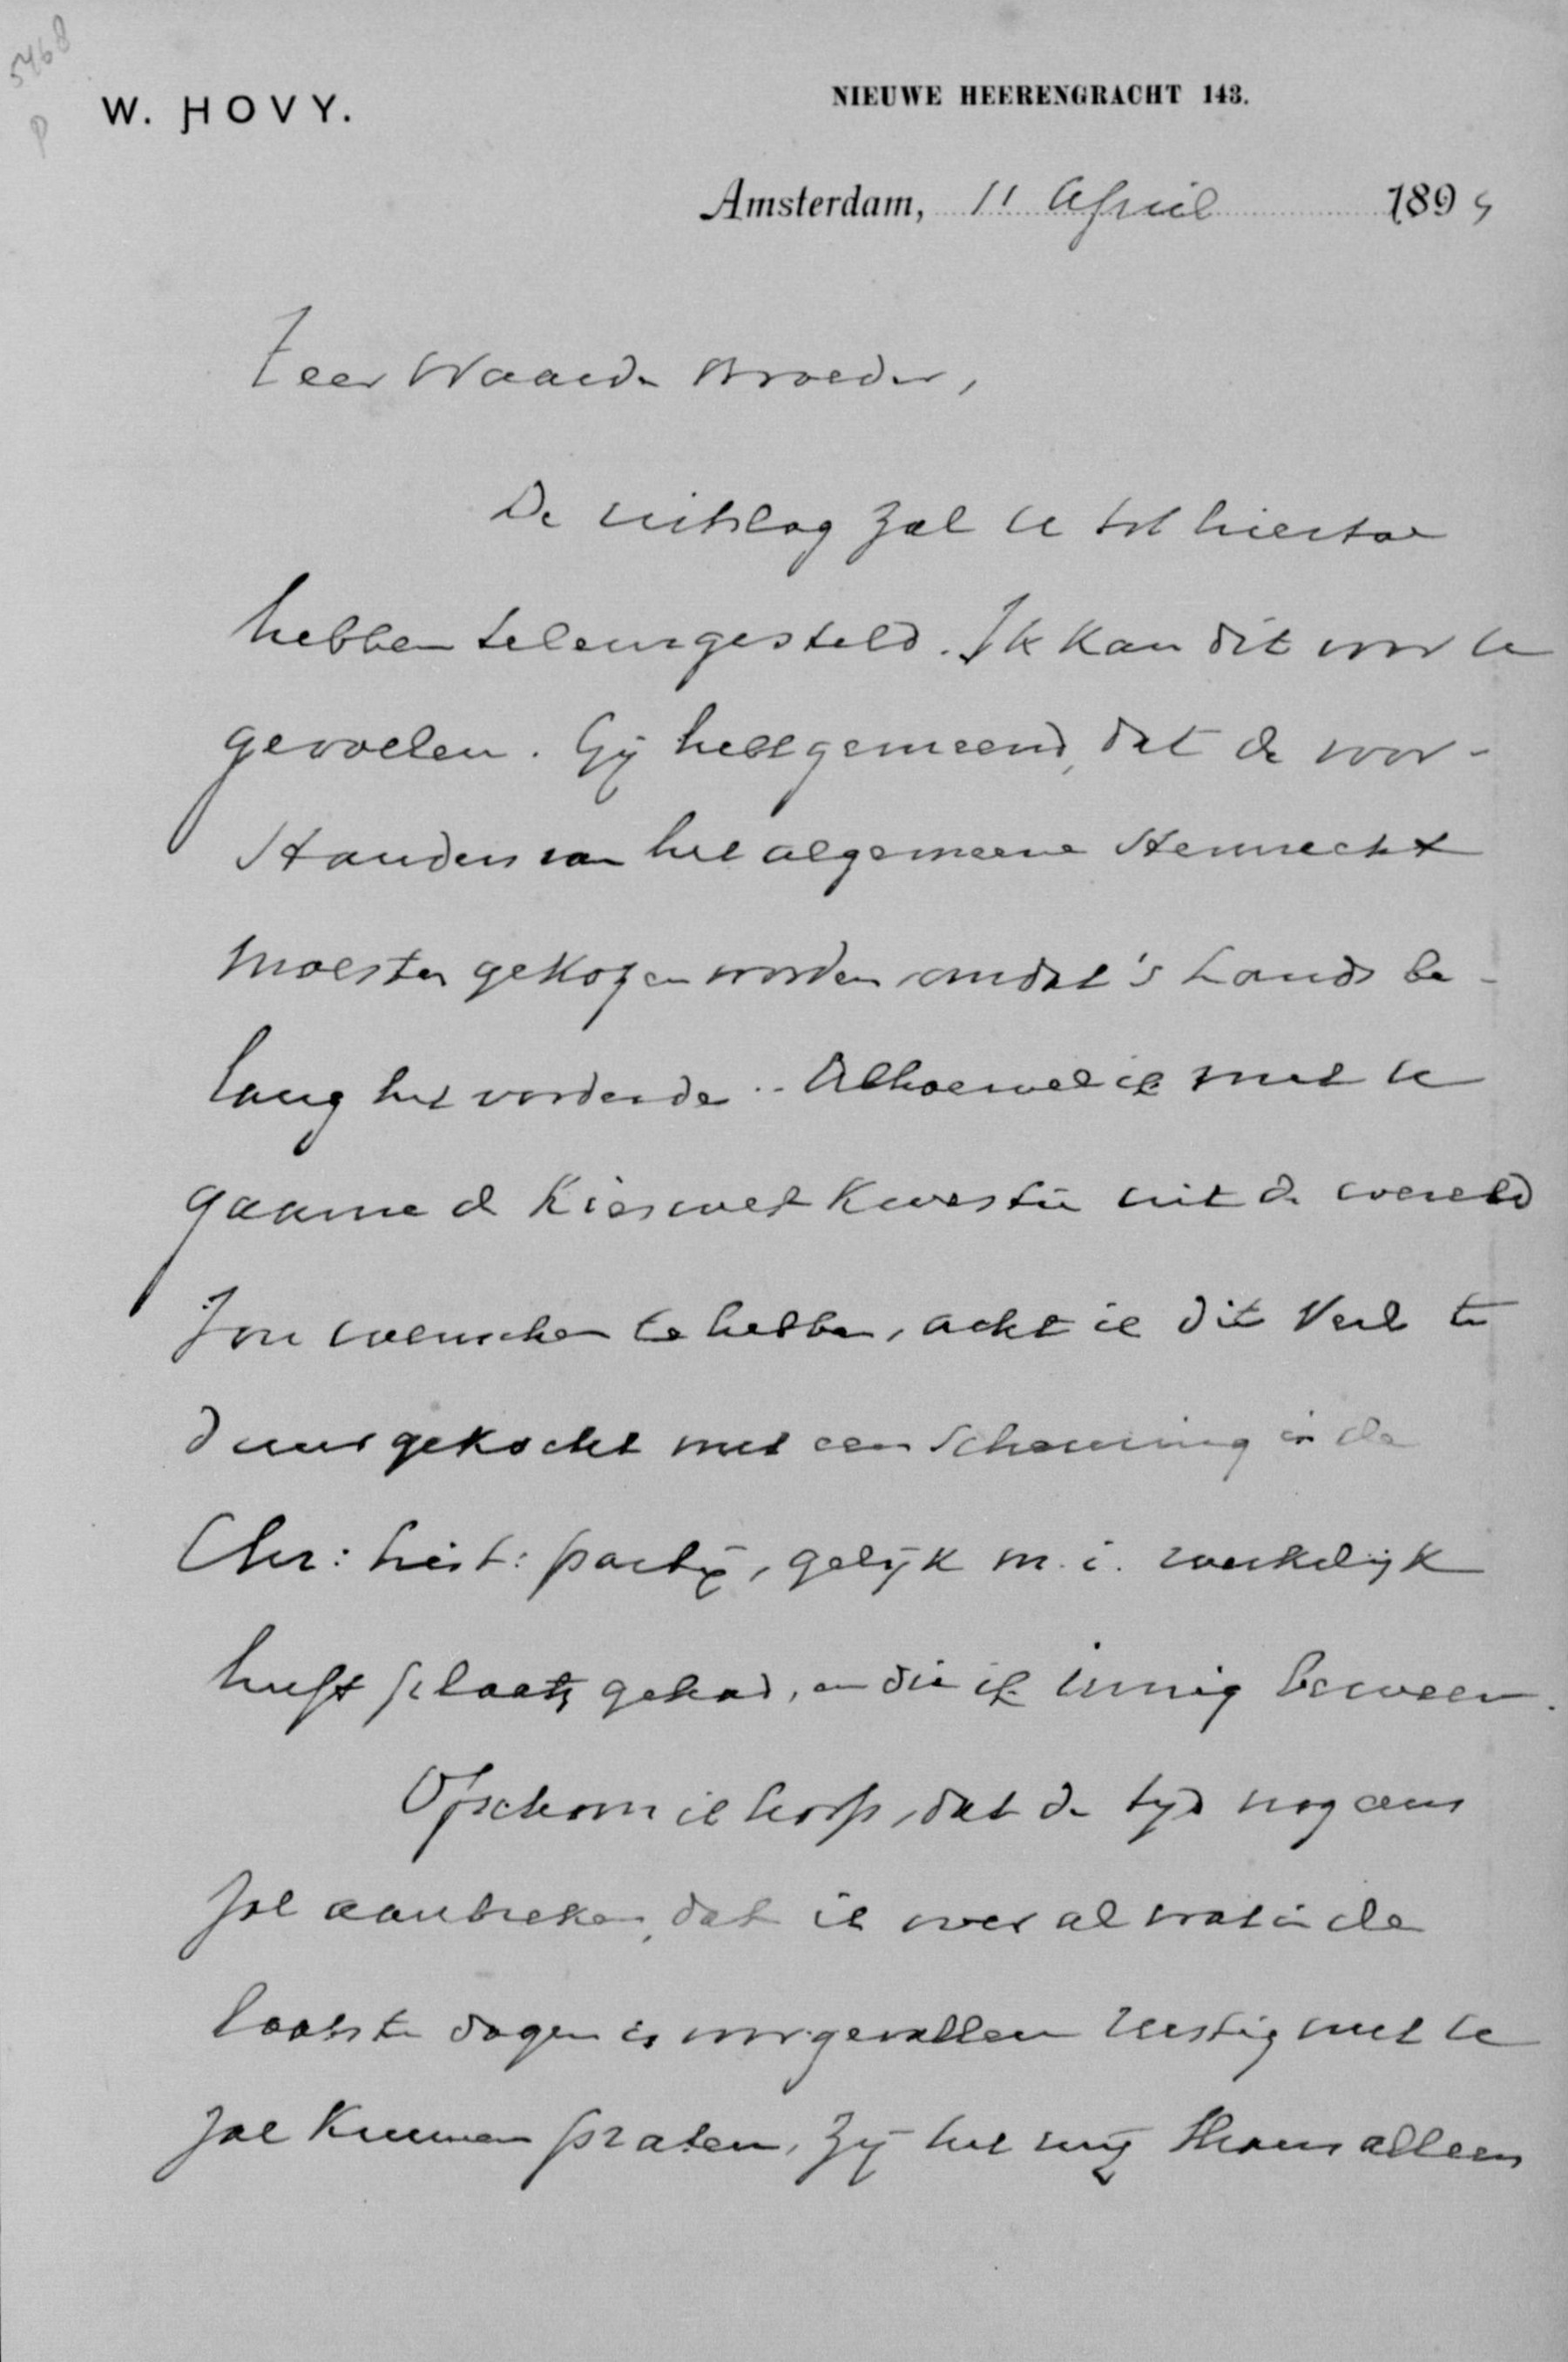 5468
P
W. HOVY.
NIEUWE HEERENGRACHT 143.
Amsterdam, 11 April 1894
Zeer Waarde Broeder,
De uitslag zal U tot hiertoe
hebben teleurgesteld. Ik kan dit voor U
gevoelen. Gij hebt gemeend, dat de voor-
standers van het algemeene stemrecht
moesten gekozen worden, omdat 's Lands be-
lang het vorderde. Alhoewel ik met U
gaarne de Kieswet Kwestie uit de wereld
zou wenschen te hebben, acht ik dit Veel te
duur gekocht met een Scheuring in de
Chr: hist: partij, gelijk m.i. werkelijk
heeft plaats gehad, en die ik innig beween.
Ofschoon ik hoop, dat de tijd nog eens
zal aanbreken, dat ik over al wat in de
laatste dagen is voorgevallen rustig met U
zal Kunnen praten, zij het mij thans alleen